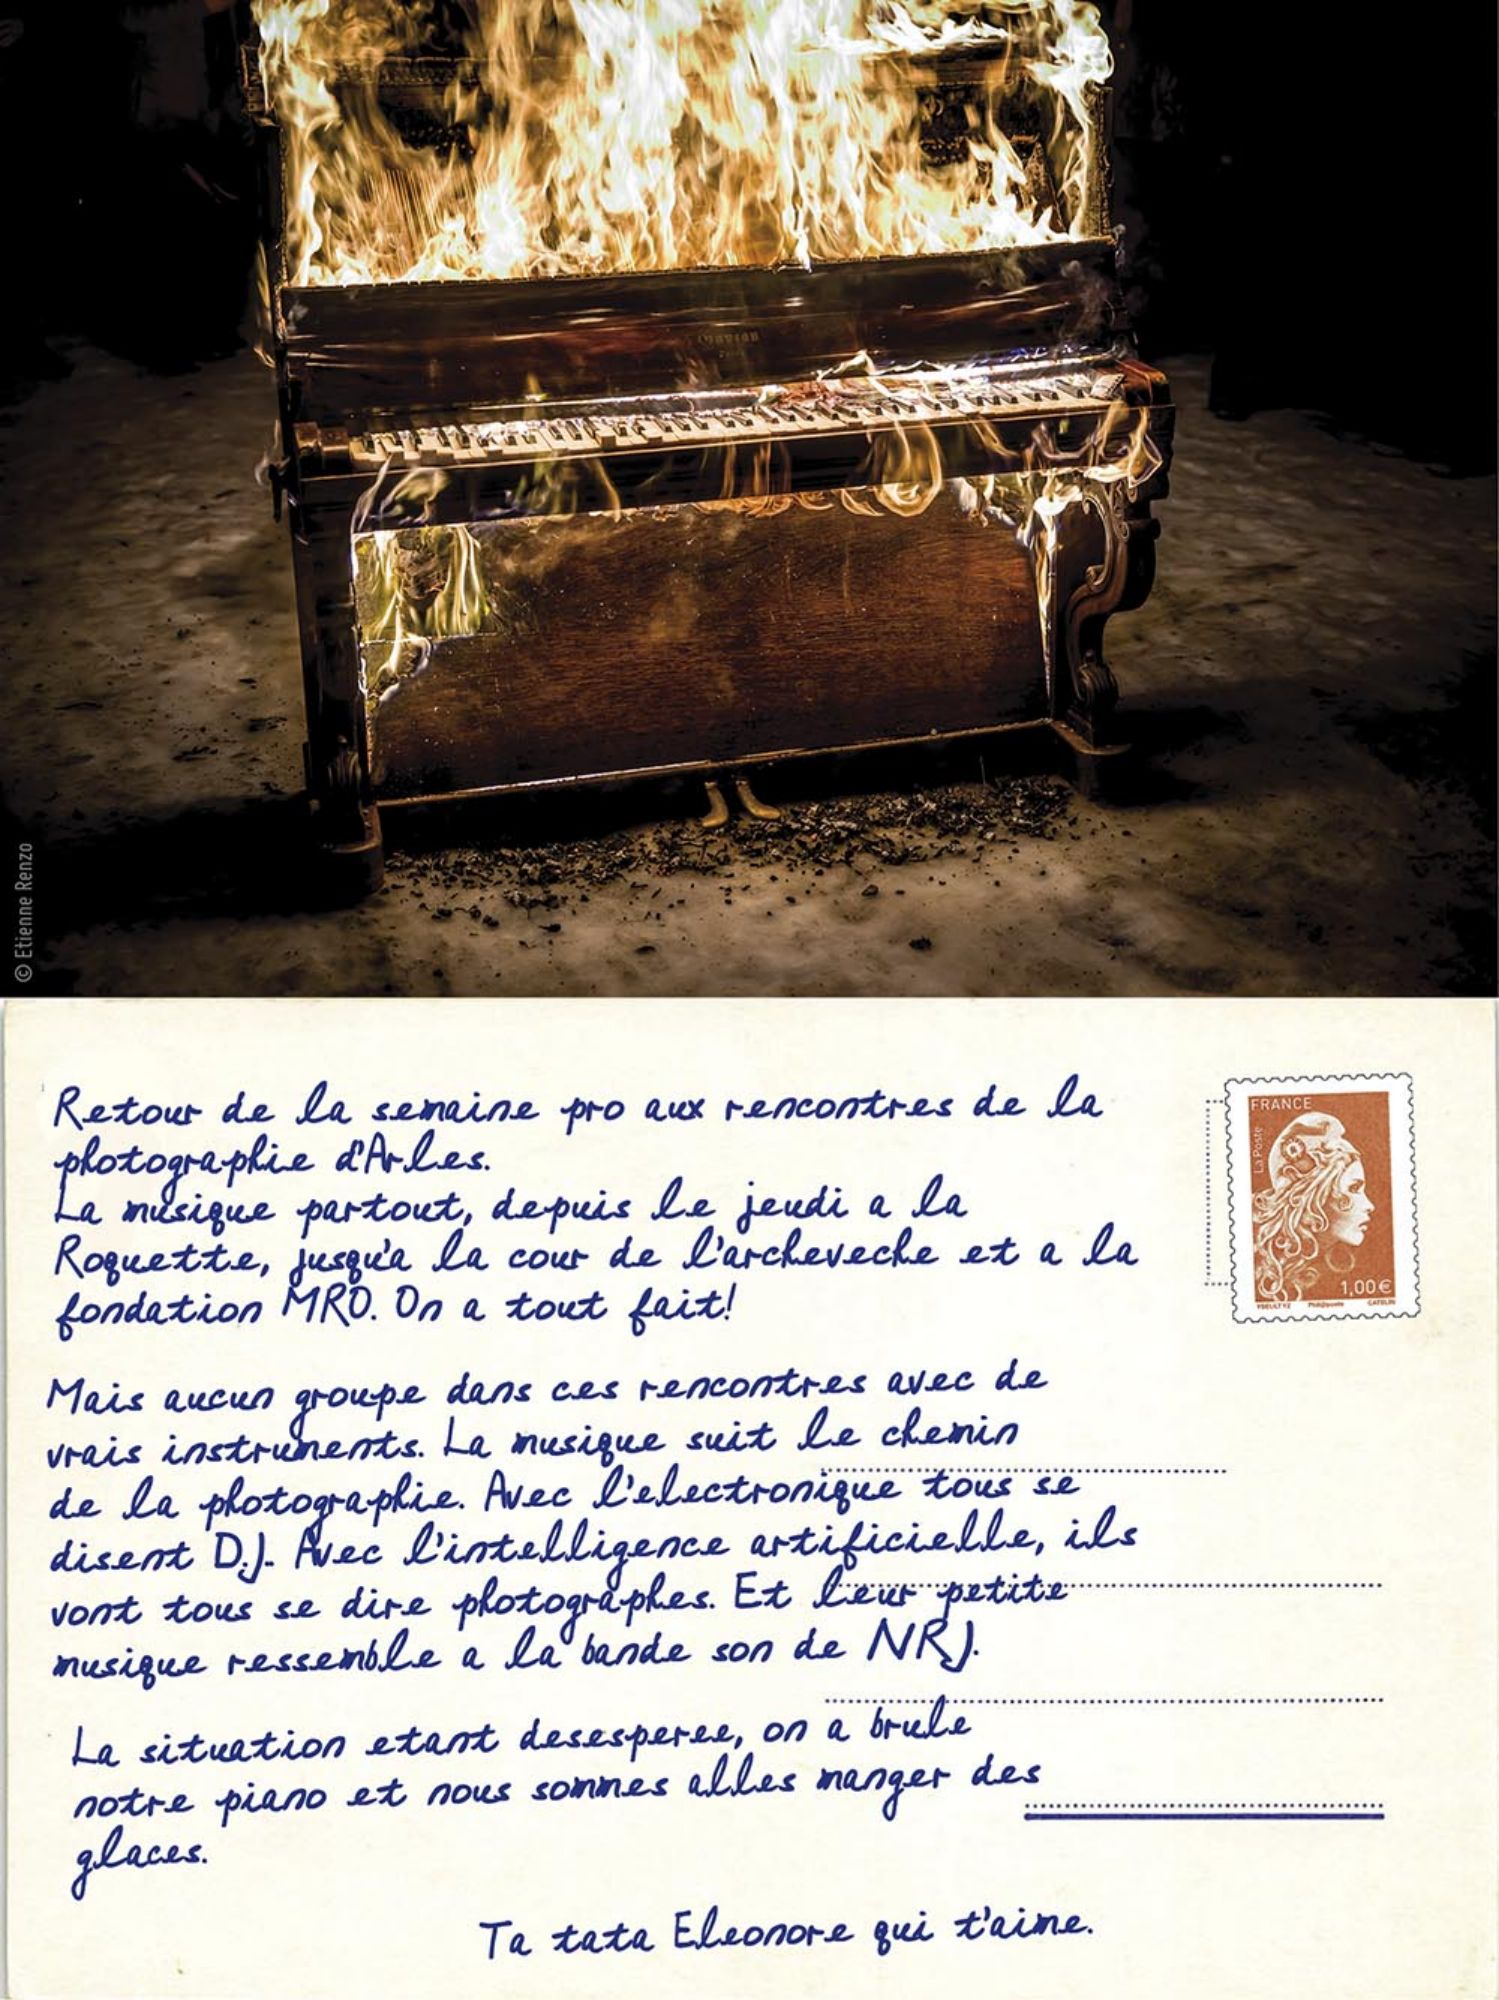 © Etienne Renzo
Retour de la semaine pro aux rencontres de la
photographie d'Arles.
La musique partout, depuis le jeudi a la
Roquette, jusqu'a la cour de l'archeveche et a la
fondation MRO. On a tout fait!
Mais aucun groupe dans ces rencontres avec de
vrais instruments. La musique suit le chemin
de la photographie. Avec l'electronique tous se
disent D.J. Avec l'intelligence artificielle, ils
vont tous se dire photographes. Et leur petite
musique ressemble a la bande son de NRJ.
La situation etant desesperee, on a brule
notre piano et nous sommes alles manger des
glaces.
Ta tata Eleonore qui t'aime.
FRANCE
La Poste
1,00 €
YSEULT YZ Phil@poste CATELIN